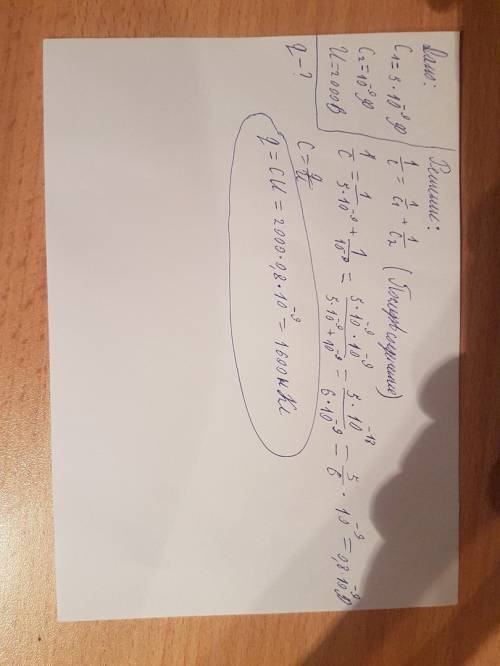 Дано:
C₁=5·10⁻⁹ Ф
C₂=10⁻⁹ Ф
U=2000В
q-?
Решение:
1/C = 1/C₁ + 1/C₂
1/C = 1/5·10⁻⁹ + 1/10⁻⁹ = 5·10⁻⁹·10⁻⁹/5·10⁻⁹+10⁻⁹ = 5·10⁻¹⁸/6·10⁻⁹ = 5/6 · 10⁻⁹ = 0,8·10⁻⁹Ф
C = q/U
q = CU = 2000·0,8·10⁻⁹ = 1600нКл